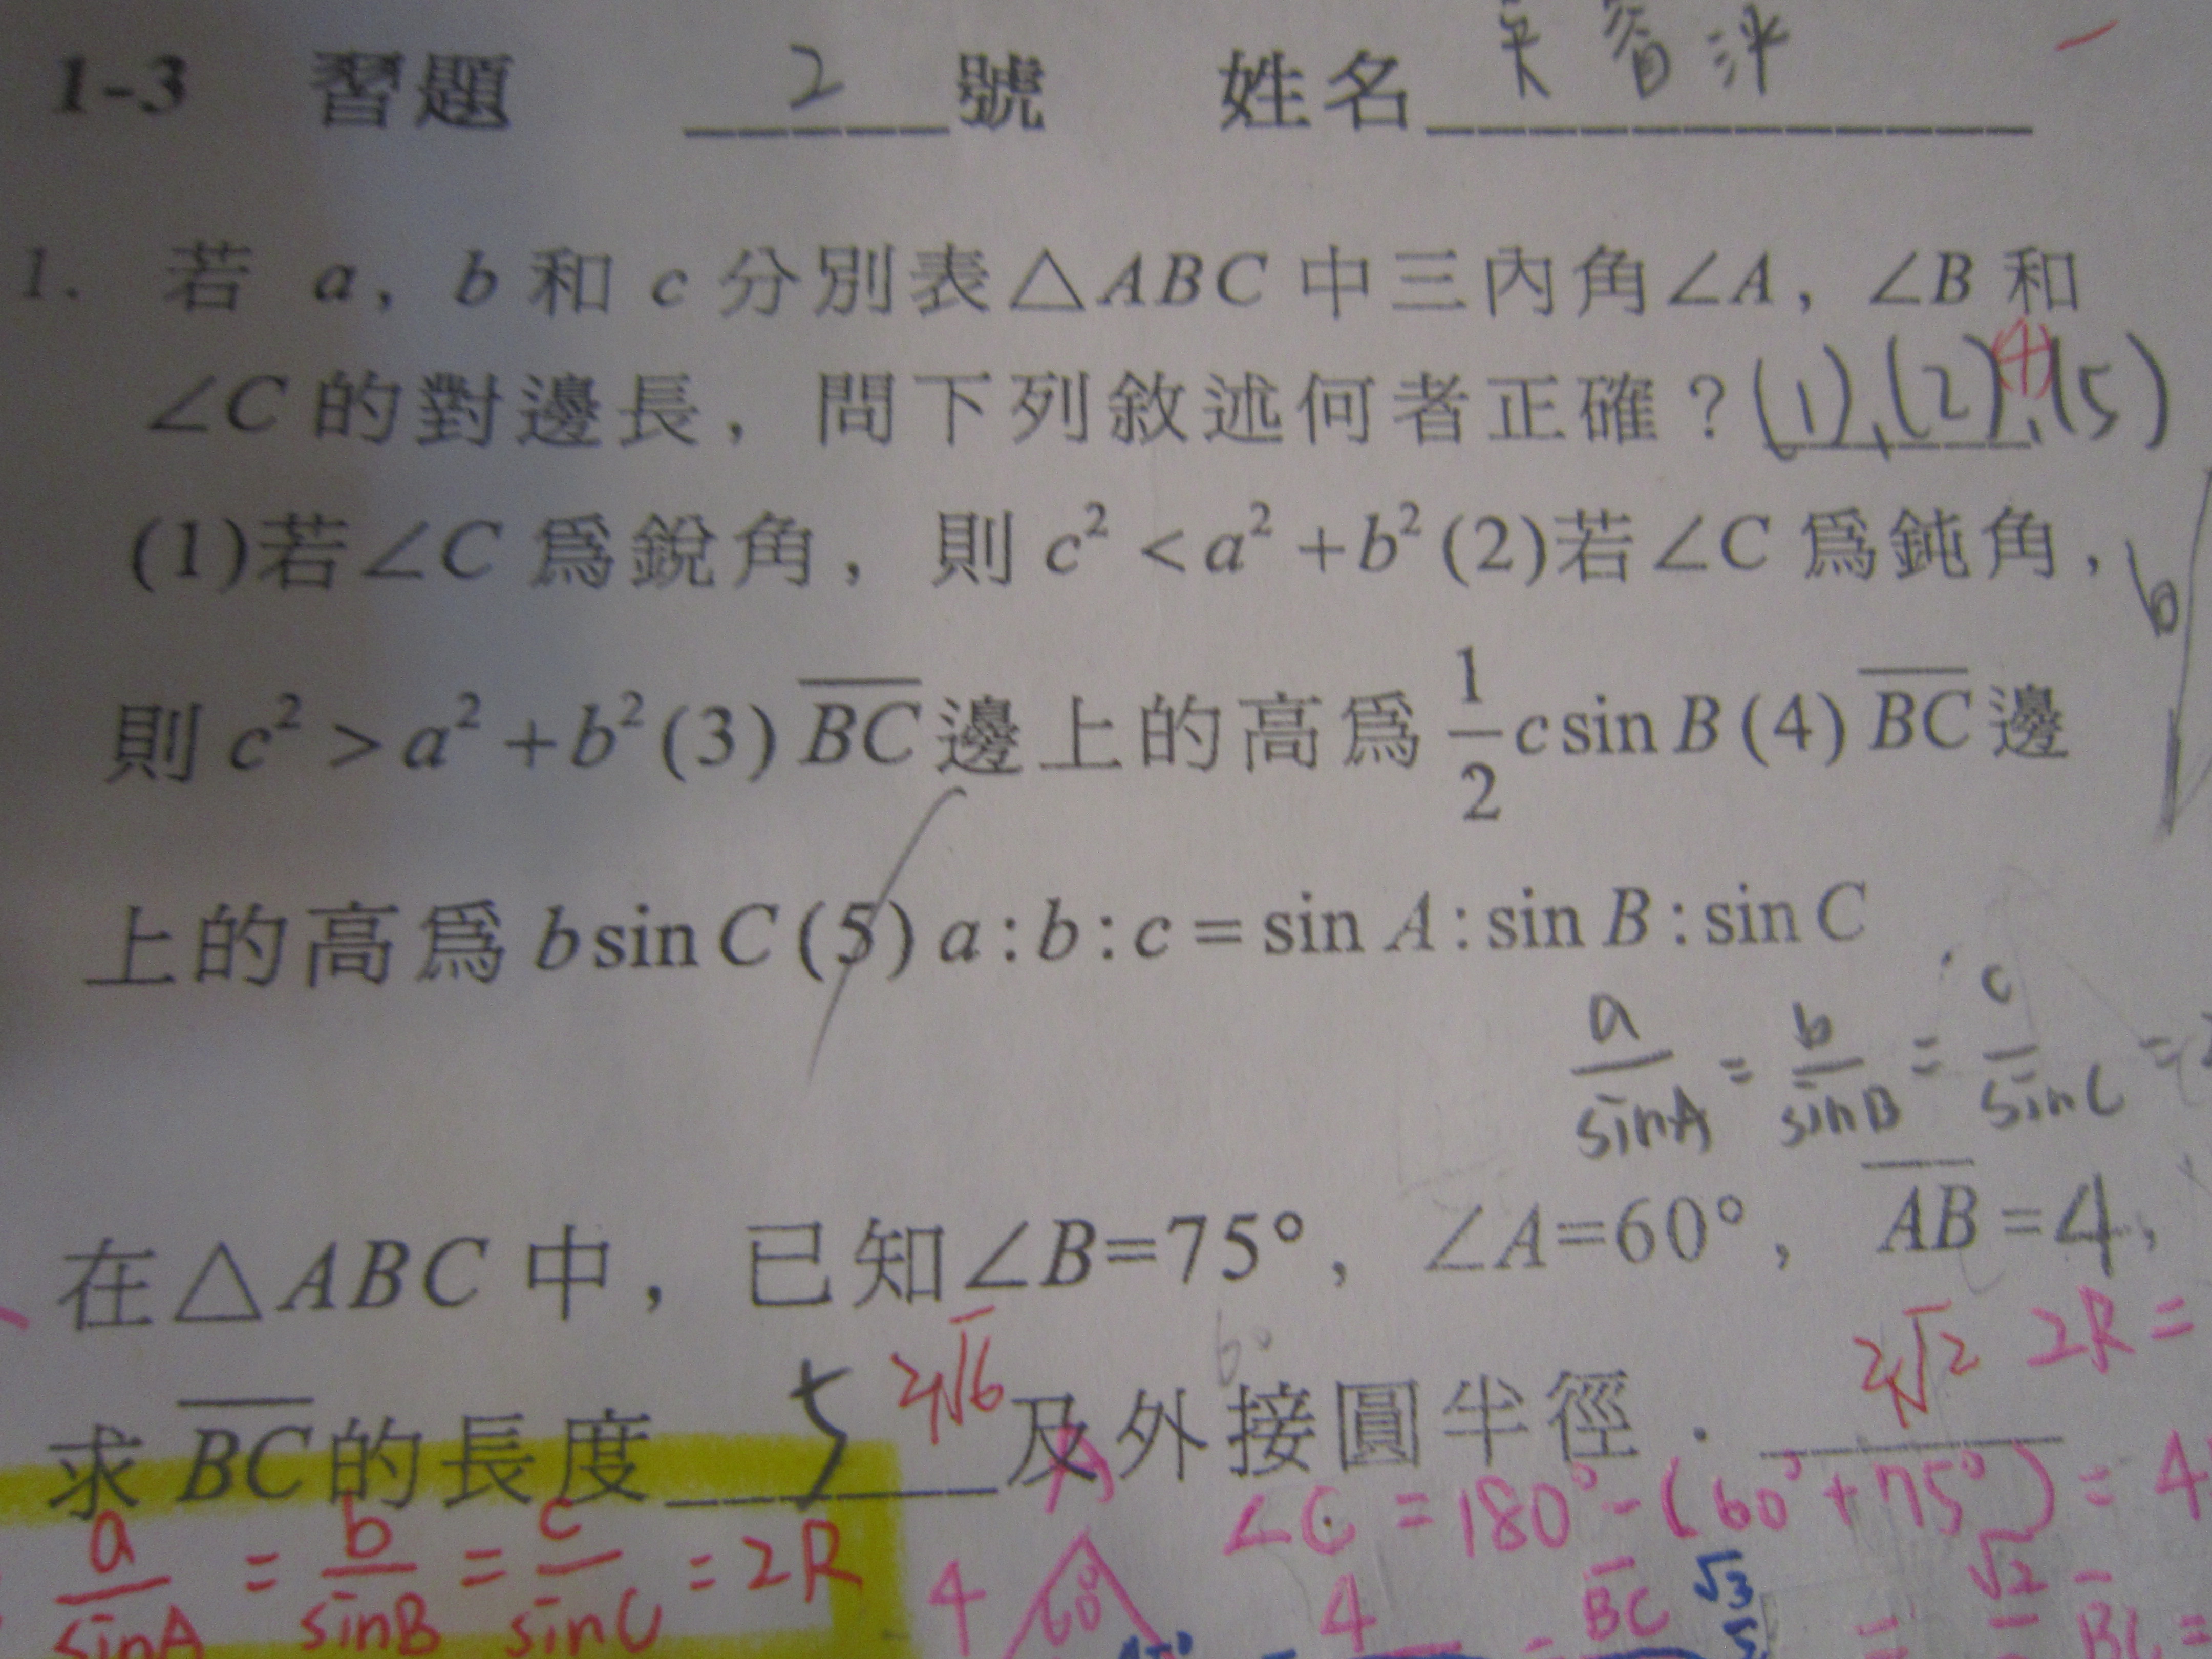 1-3 習題 2 號 姓名
1. 若 a, b 和 c 分別表△ABC 中三內角∠A, ∠B 和
∠C 的對邊長, 問下列敘述何者正確? (1),(2)(4),(5)
(1)若∠C 爲銳角, 則 c² < a² + b² (2)若∠C 爲鈍角, b
則 c² > a² + b² (3) \overline{BC} 邊上的高爲 \frac{1}{2} c sin B (4) \overline{BC} 邊
上的高爲 b sin C (5) a : b : c = sin A : sin B : sin C
\frac{a}{sinA} = \frac{b}{sinB} = \frac{c}{sinC} =
在△ABC 中, 已知∠B=75°, ∠A=60°, \overline{AB} =4,
2√6 2√2 2R =
求 \overline{BC} 的長度 5 及外接圓半徑.
A ∠C = 180° - (60° + 75°) = 4
\frac{a}{sinA} = \frac{b}{sinB} = \frac{c}{sinC} = 2R 4 60° 4 \overline{BC} √3 = √2 \overline{BC} =